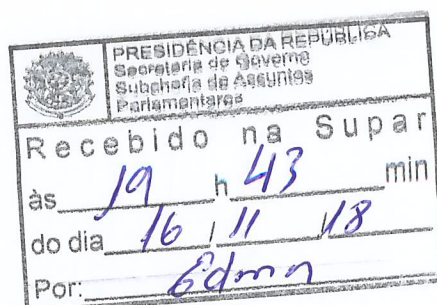 PRESIDÊNCIA DA REPÚBLICA
Secretaria de Governo
Subchefia de Assuntos
Parlamentares
Recebido na Supar
às 19 h 43 min
do dia 16 / 11 / 18
Por: